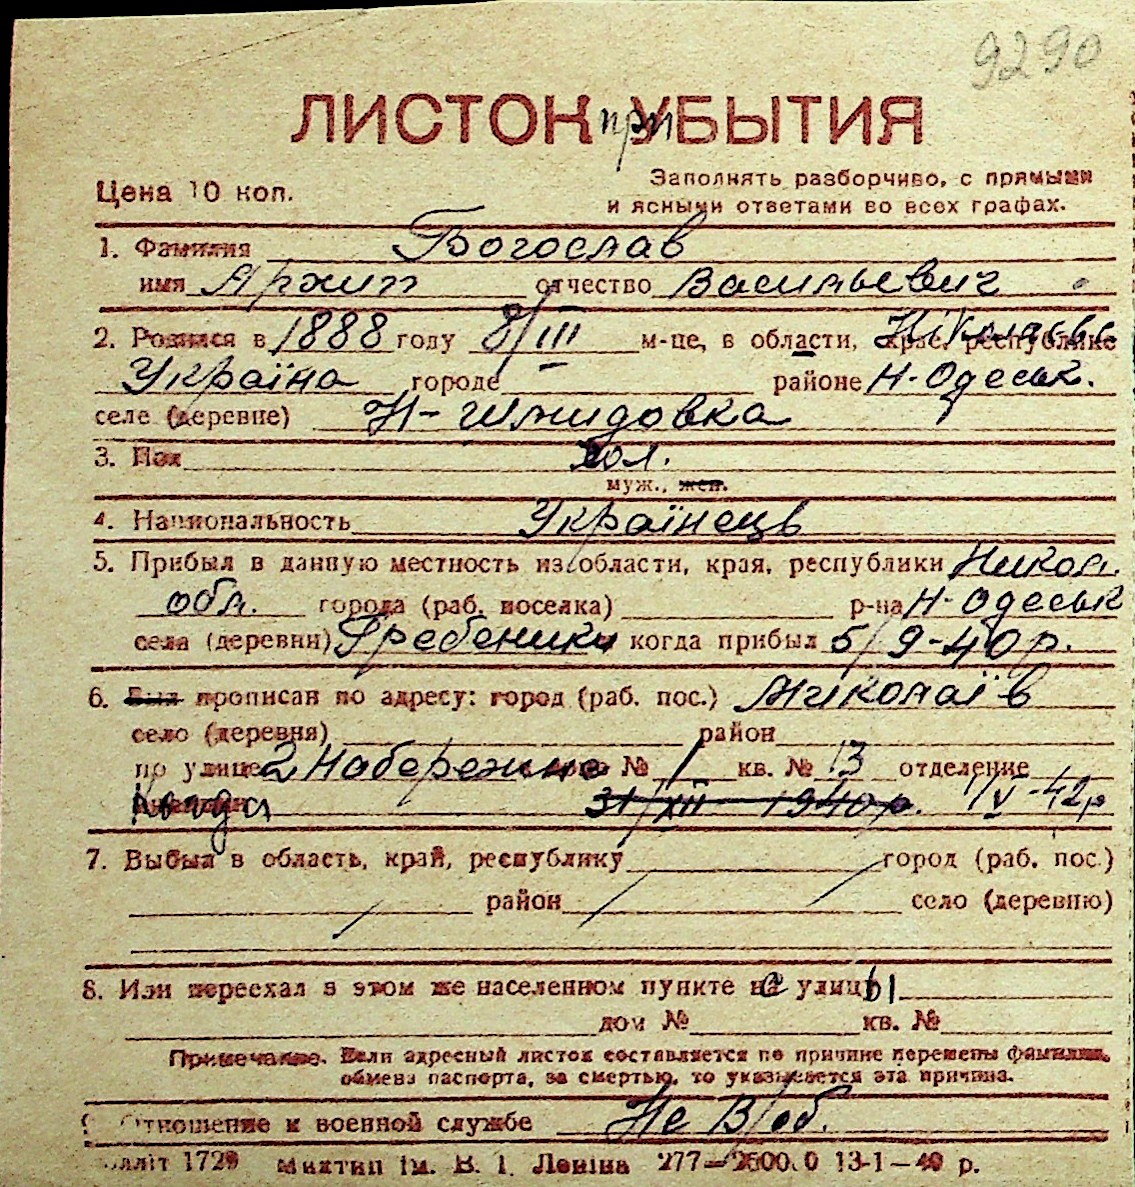 9290
ЛИСТОК при УБЫТИЯ
Цена 10 коп.
Заполнять разборчиво, с прямыми
и ясными ответами во всех графах.
1. Фамилия Богослав
имя Архип отчество Васильевич
2. Родился в 1888 году 8/III м-це, в области, крае, республике Ніколаєвс
Україна городе районе Н-Одеськ.
селе (деревне) Н-Шмидовка
3. Пол
муж., жен.
4. Национальность Українець
5. Прибыл в данную местность из области, края, республики Никол.
обл. города (раб. поселка) р-на Н-Одеськ
села (деревни) Гребеники когда прибыл 5/9-40 р.
6. Был прописан по адресу: город (раб. пос.) Миколаїв
село (деревня) район
по улице 2 Набережна № 1 кв. № 13 отделение
милиции Когда 31/XII 1940 р. 1/V-42 р
7. Выбыл в область, край, республику город (раб. пос.)
район село (деревню)
8. Или переехал в этом же населенном пункте на с улицы
дом № кв. №
Примечание. Если адресный листок составляется по причине перемены фамилии,
обмена паспорта, за смертью, то указывается эта причина.
9 Отношение к военной службе Не В/об.
лліт 1729 Миктип ім. В. І. Леніна 277—2500.0 13-1—40 р.